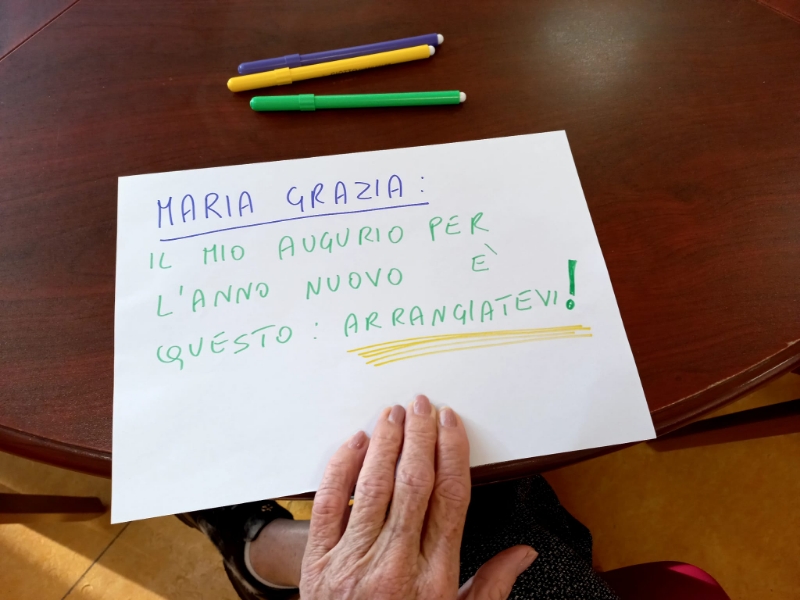 MARIA GRAZIA:
IL MIO AUGURIO PER
L'ANNO NUOVO È
QUESTO: ARRANGIATEVI!